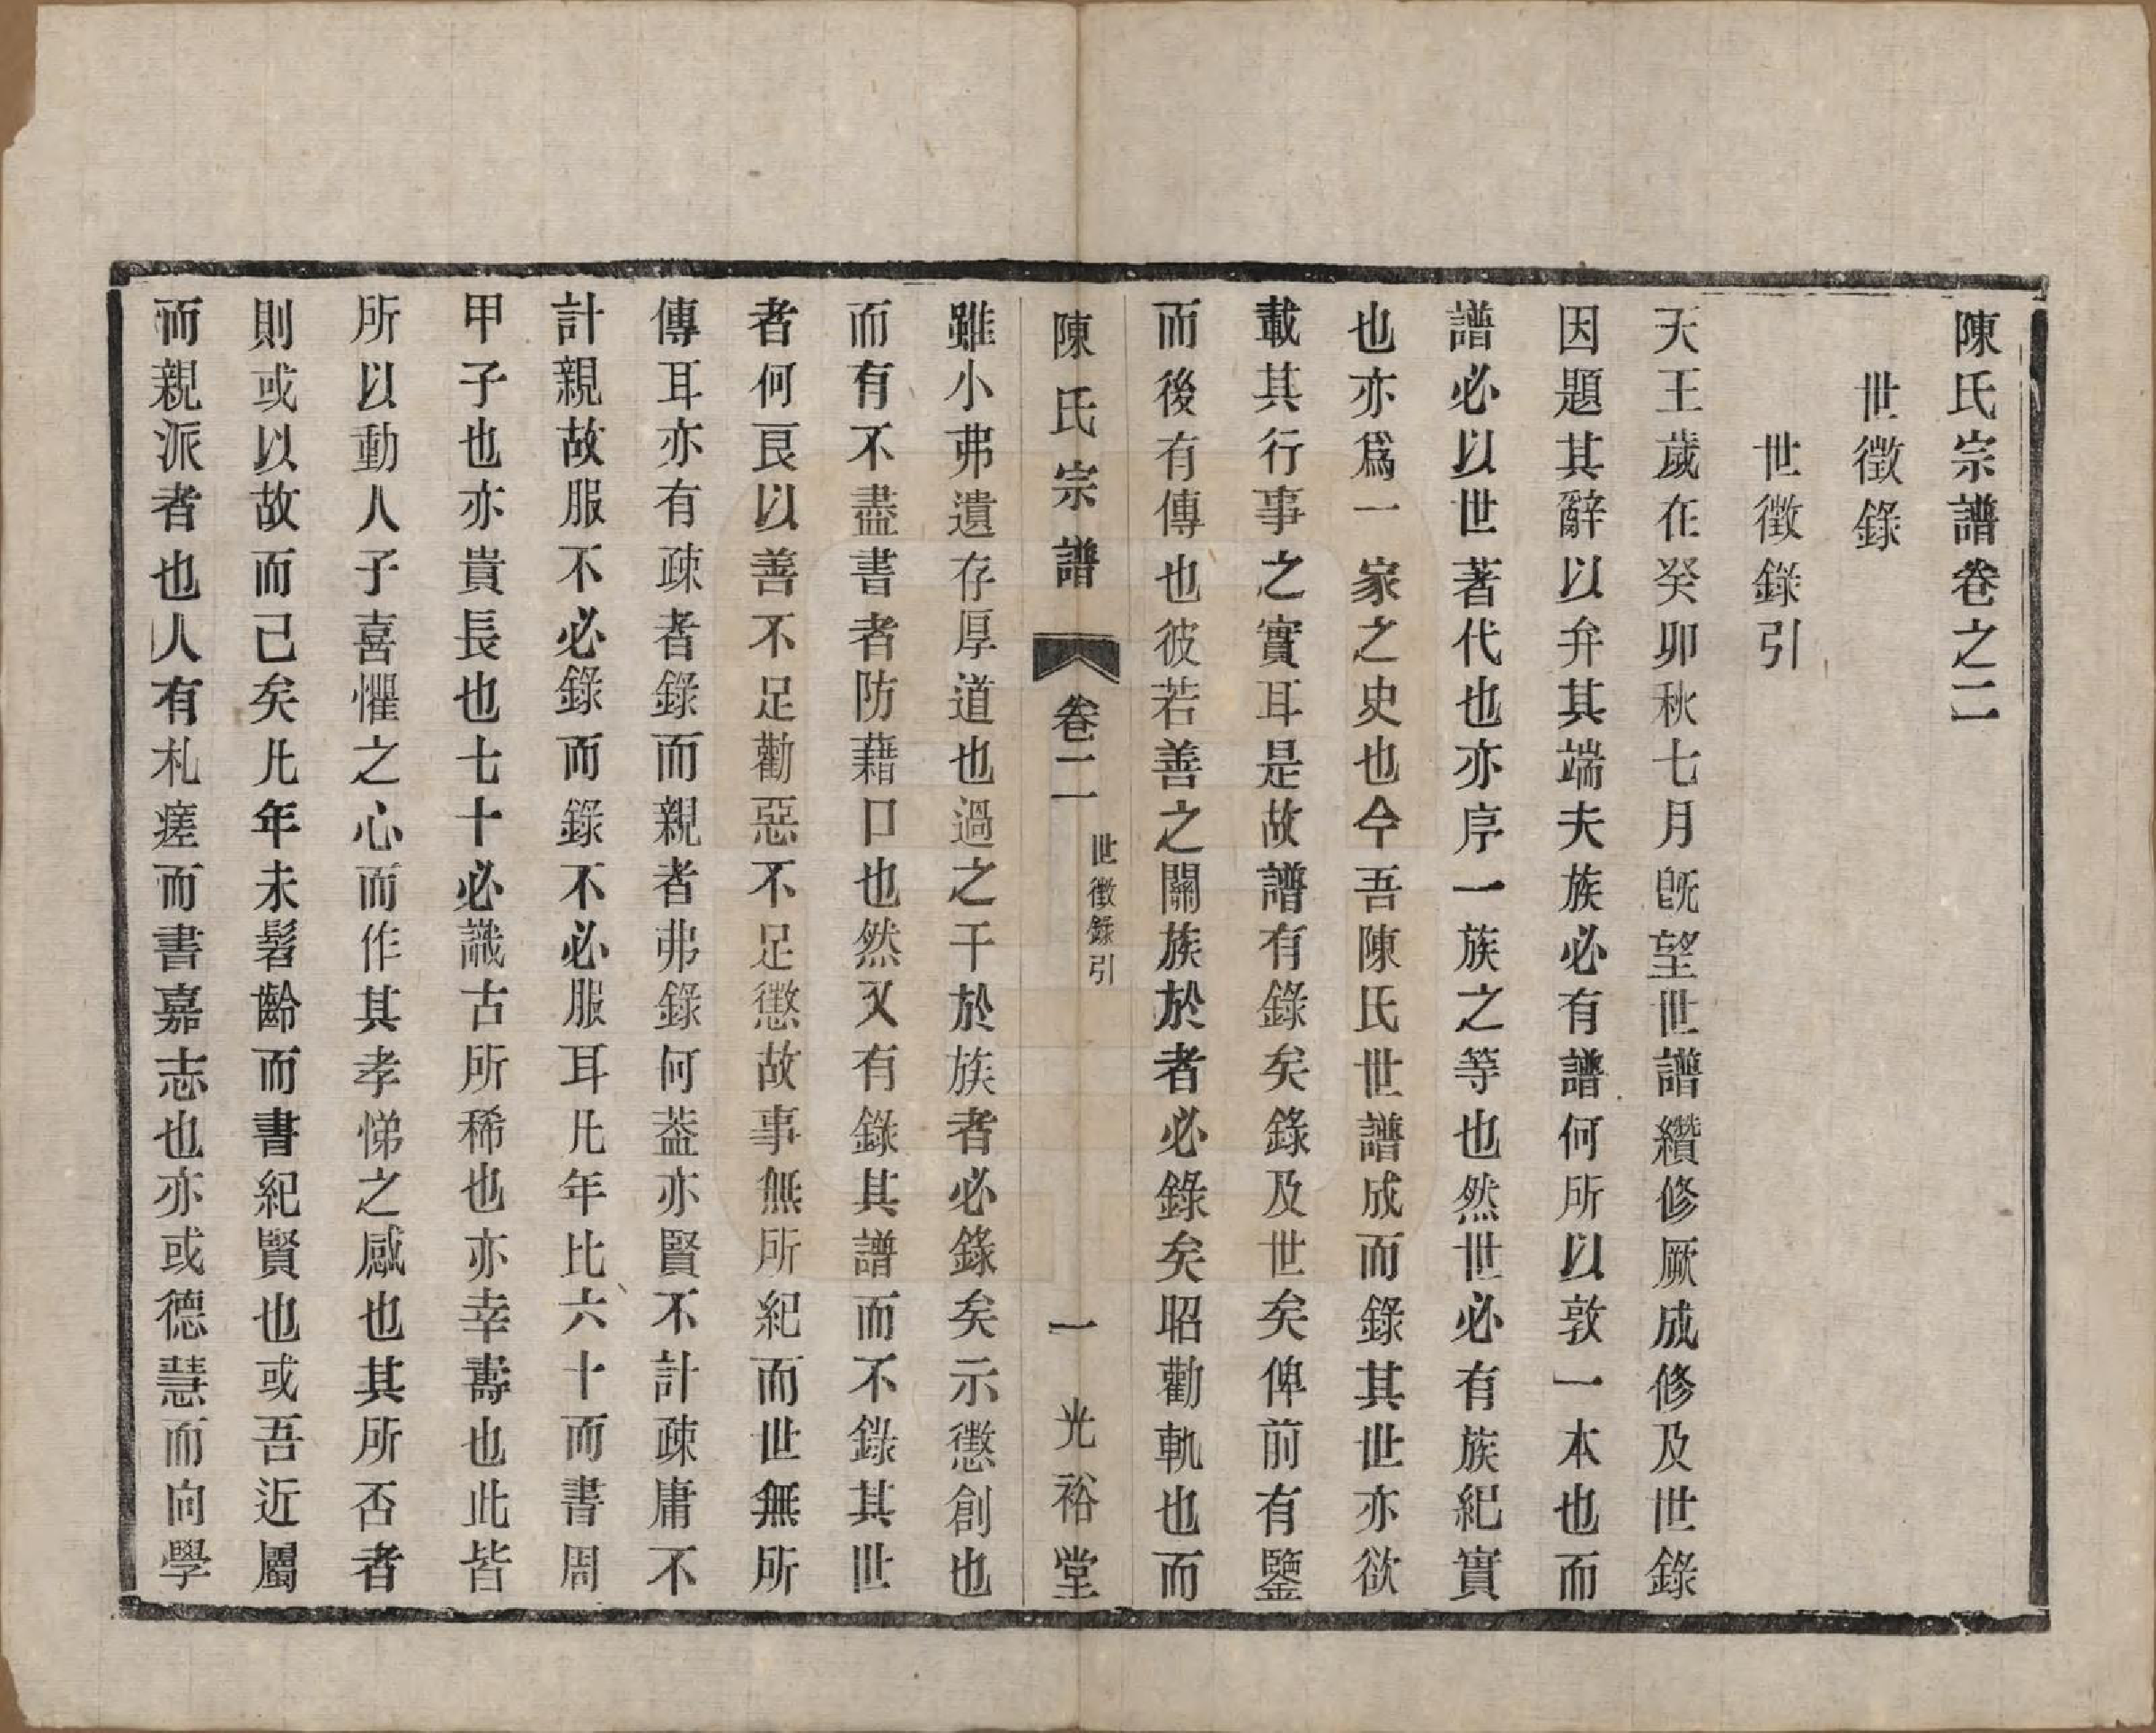 陳氏宗譜卷之二
世徵錄
世徵錄引
天王歲在癸卯秋七月旣望世譜纘修厥成修及世錄
因題其辭以弁其端夫族必有譜何所以敦一本也而
譜必以世著代也亦序一族之等也然世必有族紀實
也亦爲一家之史也今吾陳氏世譜成而錄其世亦欲
載其行事之實耳是故譜有錄矣錄及世矣俾前有鑒
而後有傳也彼若善之關族於者必錄矣昭勸軌也而
陳氏宗譜 卷二 世徵錄引 一 光裕堂
雖小弗遺存厚道也過之干於族者必錄矣示懲創也
而有不盡書者防藉口也然又有錄其譜而不錄其世
者何良以善不足勸惡不足懲故事無所紀而世無所
傳耳亦有疎者錄而親者弗錄何葢亦賢不計疎庸不
計親故服不必錄而錄不必服耳凡年比六十而書周
甲子也亦貴長也七十必識古所稀也亦幸壽也此皆
所以動人子喜懼之心而作其孝悌之感也其所否者
則或以故而已矣凡年未髫齡而書紀賢也或吾近屬
而親派者也人有札瘥而書嘉志也亦或德慧而向學